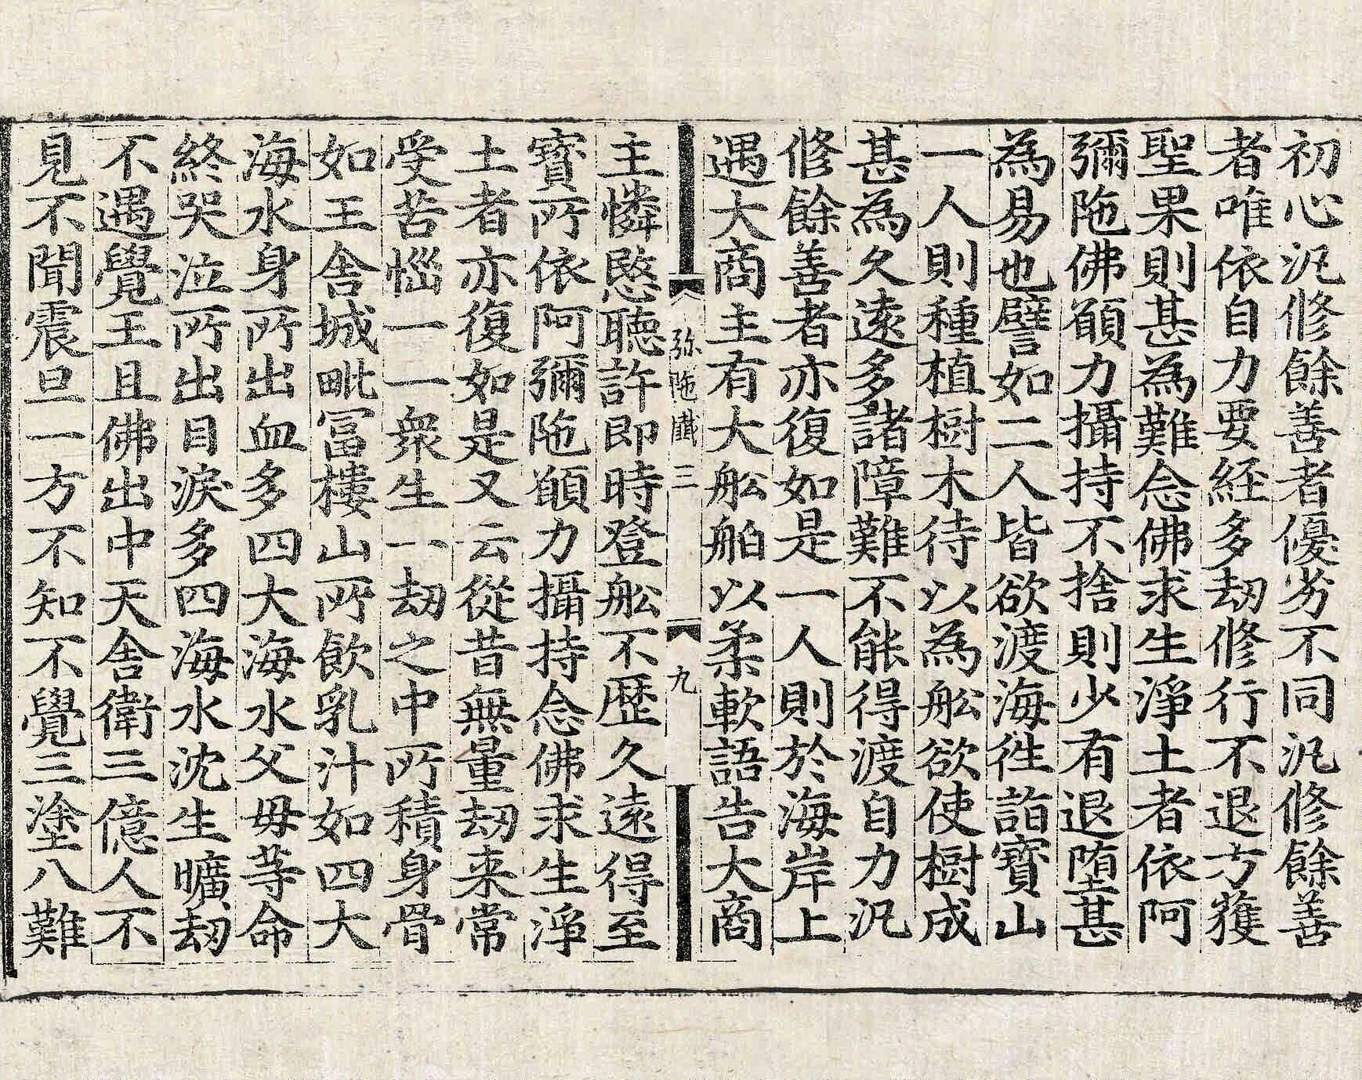 初心汎修餘善者優劣不同汎修餘善
者唯依自力要経多劫修行不退方獲
聖果則甚為難念佛求生淨土者依阿
彌陁佛願力攝持不捨則少有退堕甚
為易也譬如二人皆欲渡海徃詣寶山
一人則種植樹木待以為舩欲使樹成
甚為久遠多諸障難不能得渡自力汎
修餘善者亦復如是一人則於海岸上
遇大商主有大舩舶以柔軟語告大商
弥陁懺三
九
主憐愍聽許即時登舩不歷久遠得至
寶所依阿彌陁願力攝持念佛求生淨
土者亦復如是又云從昔無量劫来常
受苦惱一一衆生一劫之中所積身骨
如王舍城毗富樓山所飲乳汁如四大
海水身所出血多四大海水父母等命
終哭泣所出目淚多四海水沈生曠劫
不遇覺王且佛出中天舍衛三億人不
見不聞震旦一方不知不覺三塗八難